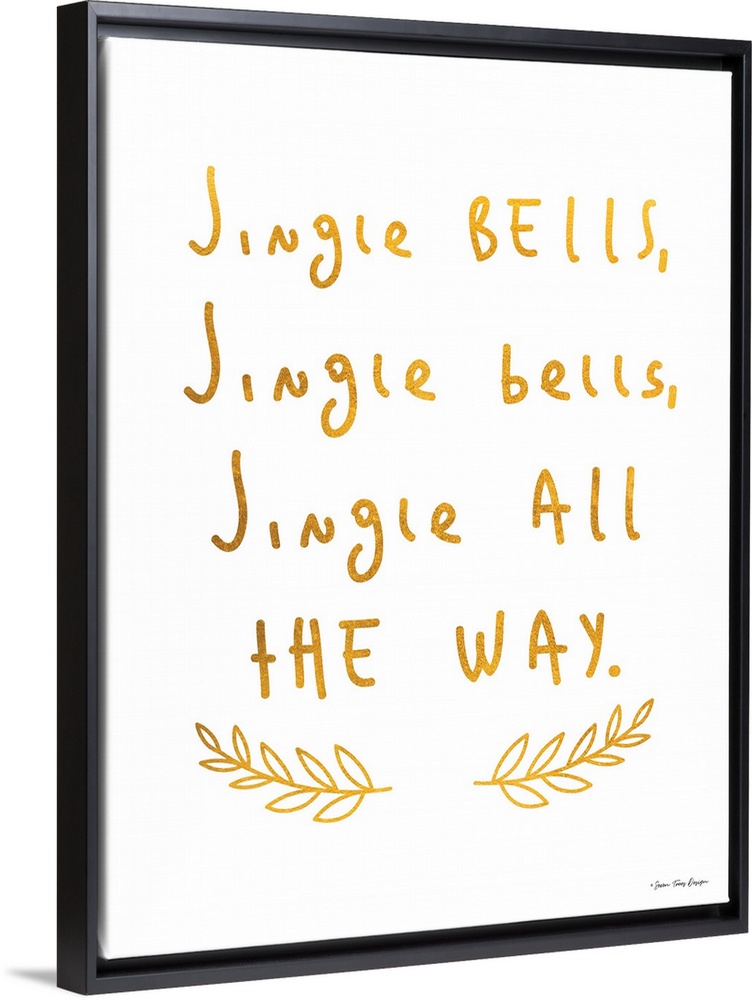 Jingle BElls,
Jingle bells,
Jingle All
tHE WAY.
© Seven Trees Design